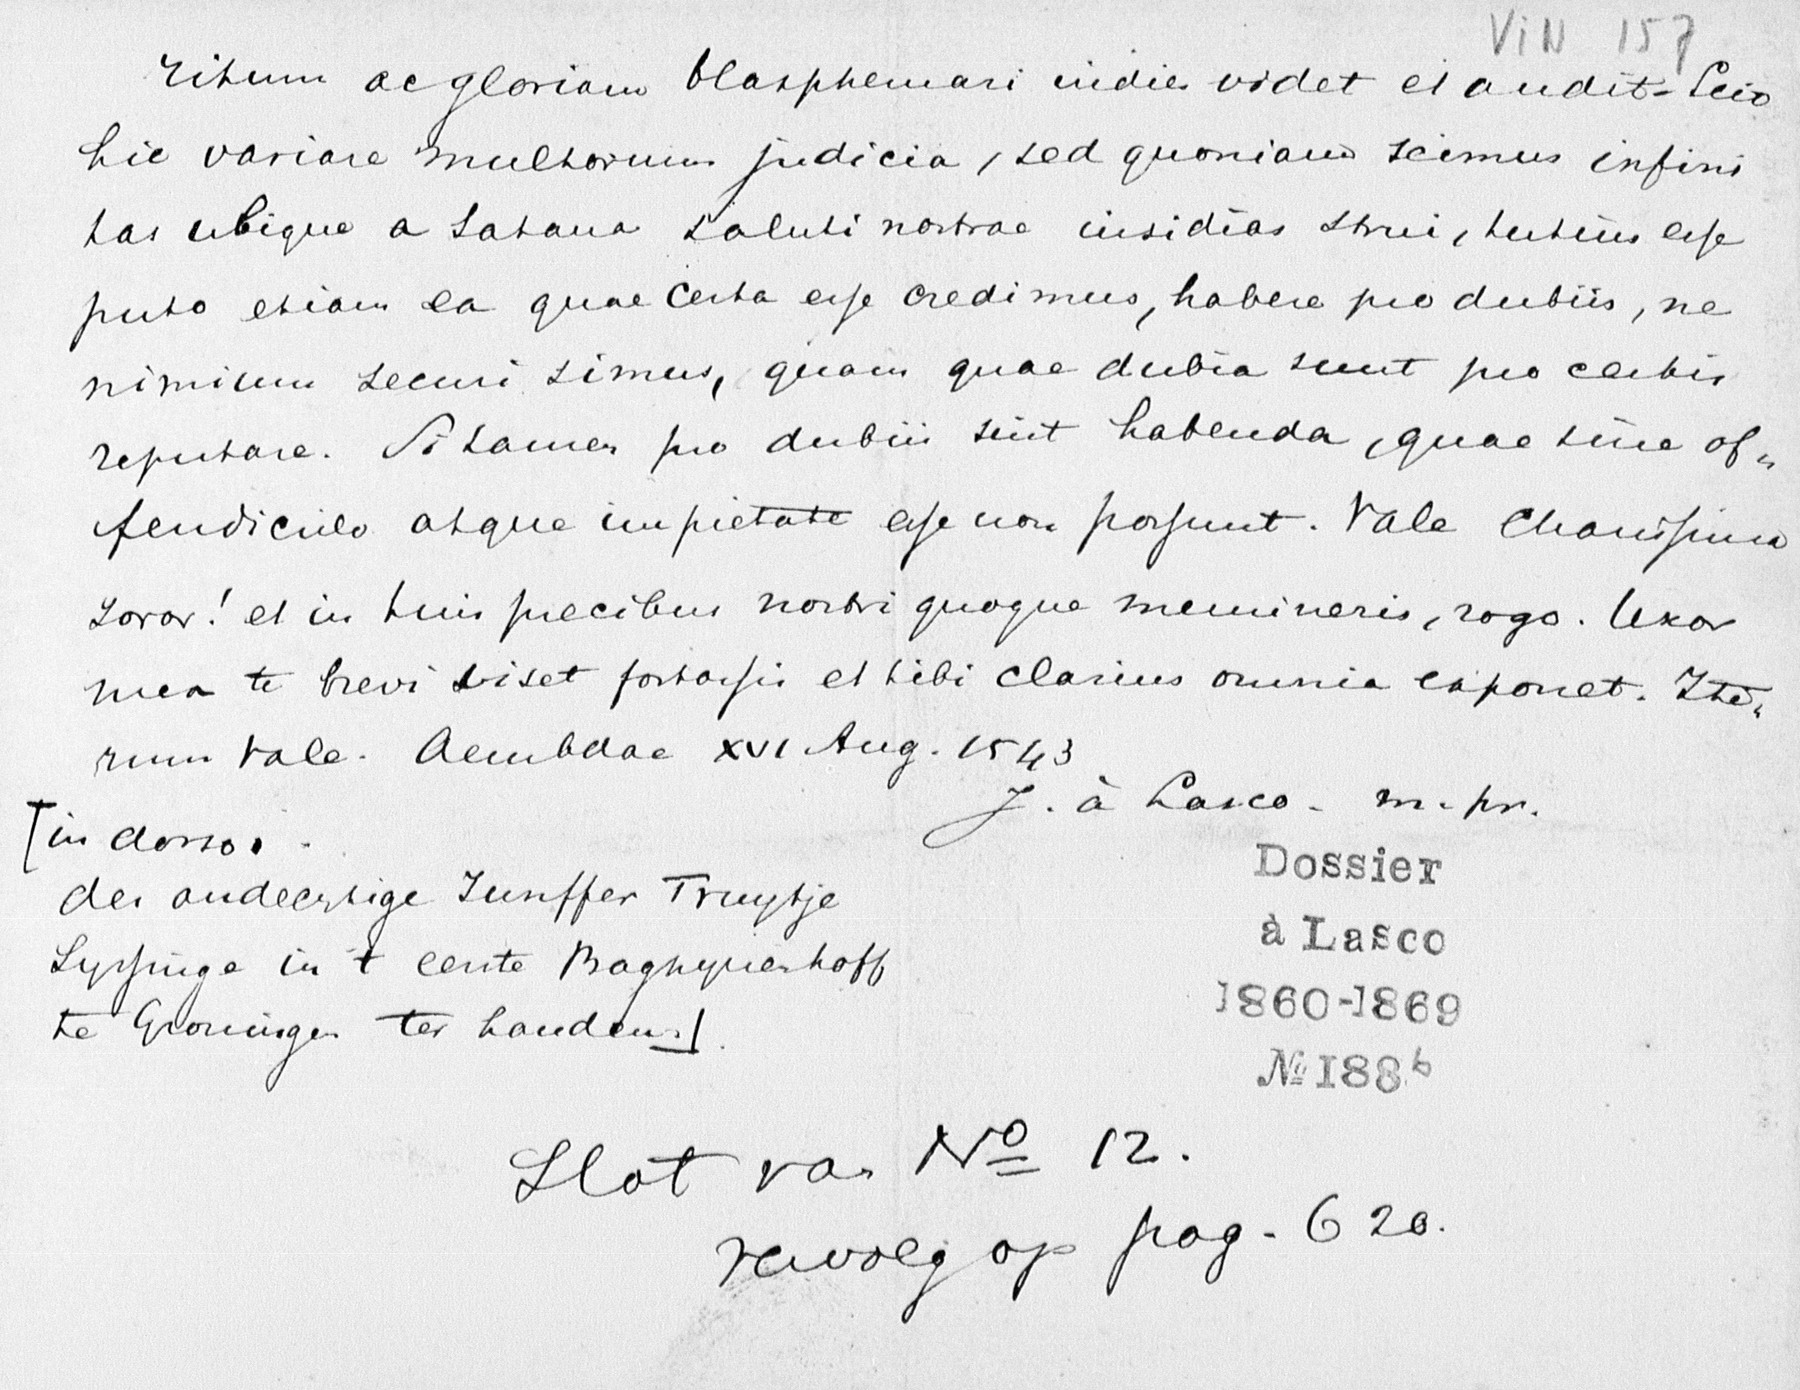 ViN 157
ritum ac gloriam blasphemari indies videt et audit. Scio
hic variare multorum judicia, sed quoniam scimus infini
tas ubique a Satana saluti nostrae insidias strui, tutius esse
puto etiam ea quae certa esse credimus, habere pro dubiis, ne
nimium securi simus, quam quae dubia sunt pro certis
reputare. Si tamen pro dubiis sint habenda, quae sine of„
fendiculo atque impietate esse non possunt. Vale Charissima
soror! et in tuis precibus nostri quoque memineris, rogo. Uxor
mea te brevi viset fortassis et tibi clarius omnia exponet. Ite„
rum vale. Aembdae XVI Aug. 1543
J. à Lasco. m. pr.
[in dorso.
der andechtige Junffer Truytje
Syssinge in 't eerste Baghynenhoff
te Groningen ter handen.]
Dossier
à Lasco
1860-1869
No 188b
Slot van No 12.
vervolg op pag. 620.